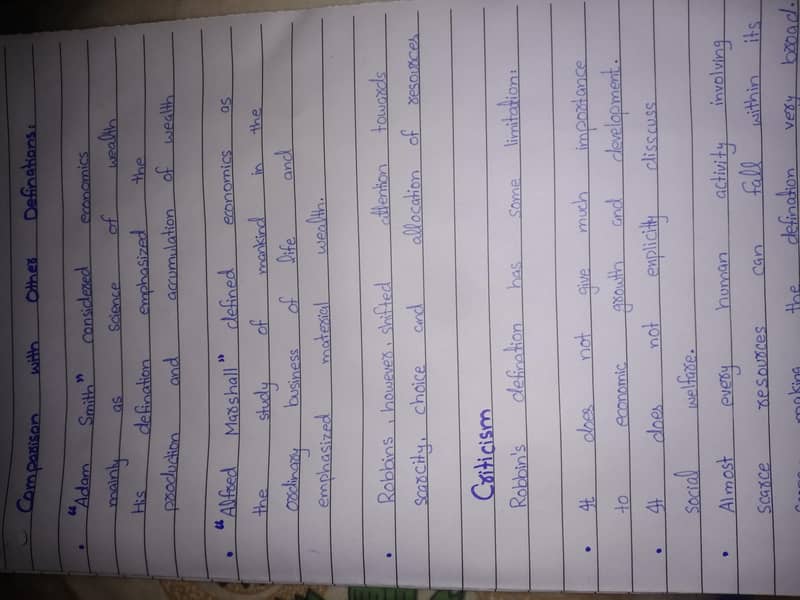 Comparison with Other Definations:
• "Adam Smith" considered economics
mainly as science of wealth
His defination emphasized the
production and accumulation of wealth
• "Alfred Marshall" defined economics as
the study of mankind in the
ordinary business of life and
emphasized material wealth.
• Robbins, however, shifted attention towards
scarcity, choice and allocation of resources
Criticism
Robbin's defination has some limitation:
• It does not give much importance
to economic growth and development.
• It does not explicity disscuss
social welfare.
• Almost every human activity involving
scarce resources can fall within its
making the defination very broad.